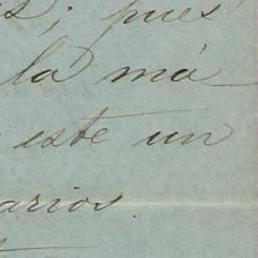 s; pues
la má
este un
arios.